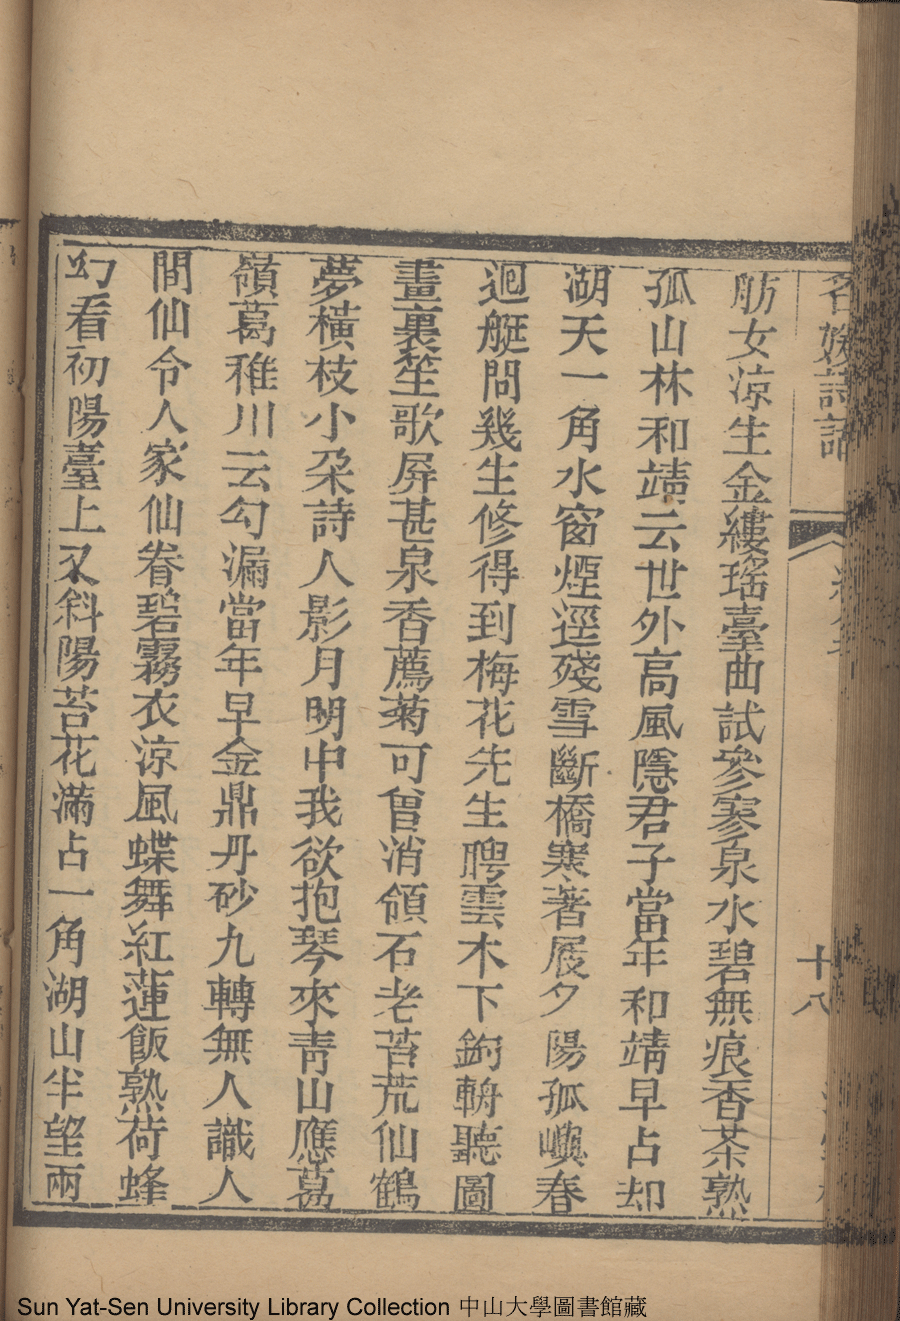 名媛詩話
十八
舫女涼生金縷瑤臺曲試參寥泉水碧無痕香茶熟
孤山林和靖云世外高風隱君子當年和靖早占却
湖天一角水窗煙逕殘雪斷橋寒著屐夕陽孤嶼春
迴艇問幾生修得到梅花先生聘雲木下鉤輈聽圖
畫裏笙歌屏甚泉香薦菊可曾消領石老苔荒仙鶴
夢橫枝小朶詩人影月明中我欲抱琴來青山應葛
嶺葛稚川云勾漏當年早金鼎丹砂九轉無人識人
間仙令人家仙眷碧霧衣涼風蝶舞紅蓮飯熟荷蜂
幻看初陽臺上又斜陽苔花滿占一角湖山半望兩
Sun Yat-Sen University Library Collection 中山大學圖書館藏